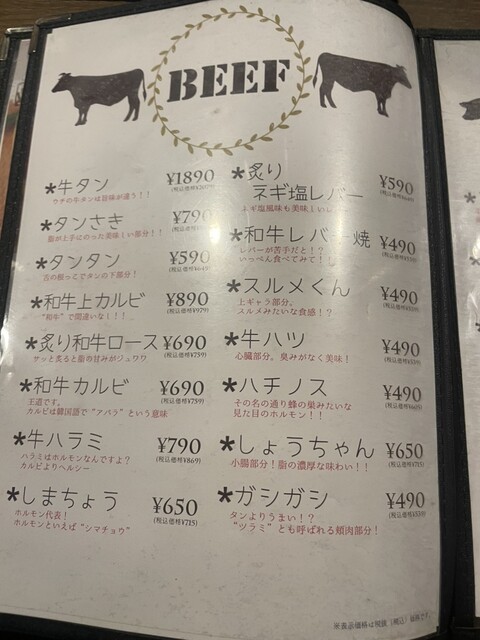 BEEF
*牛タン ¥1890
ウチの牛タンは旨味が違う！！
*タンさき ¥790
脂が上手にのった美味しい部分！！
*タンタン ¥590
舌の根っこでタンの下部分！
*和牛上カルビ ¥890
"和牛"で間違いな！！！ (税込価格¥979)
*炙り和牛ロース ¥690
サッと炙ると脂の甘みがジュワワ (税込価格¥759)
*和牛カルビ ¥690
王道です。 (税込価格¥759)
カルビは韓国語で"アバラ"という意味
*牛ハラミ ¥790
ハラミはホルモンなんですよ？ (税込価格¥869)
カルビよりヘルシー
*しまちょう ¥650
ホルモン代表！ (税込価格¥715)
ホルモンといえば"シマチョウ"
*炙り
ネギ塩レバー ¥590
ネギ塩風味も美味しい
*和牛レバー焼 ¥490
レバーが苦手だと！？
いっぺん食べてみて！
*スルメくん ¥490
上ギャラ部分。
スルメみたいな食感！？
*牛ハツ ¥490
心臓部分。臭みがなく美味！ (税込価格¥539)
*ハチノス ¥490
その名の通り蜂の巣みたいな
見た目のホルモン！！
*しょうちゃん ¥650
小腸部分！脂の濃厚な味わい！！ (税込価格¥715)
*ガシガシ ¥490
タンよりうまい！？ (税込価格¥539)
"ツラミ"とも呼ばれる頬肉部分！